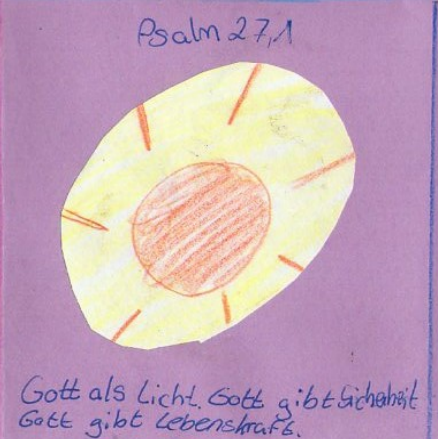 Psalm 27,1
Gott als Licht. Gott gibt Sicherheit
Gott gibt Lebenskraft.